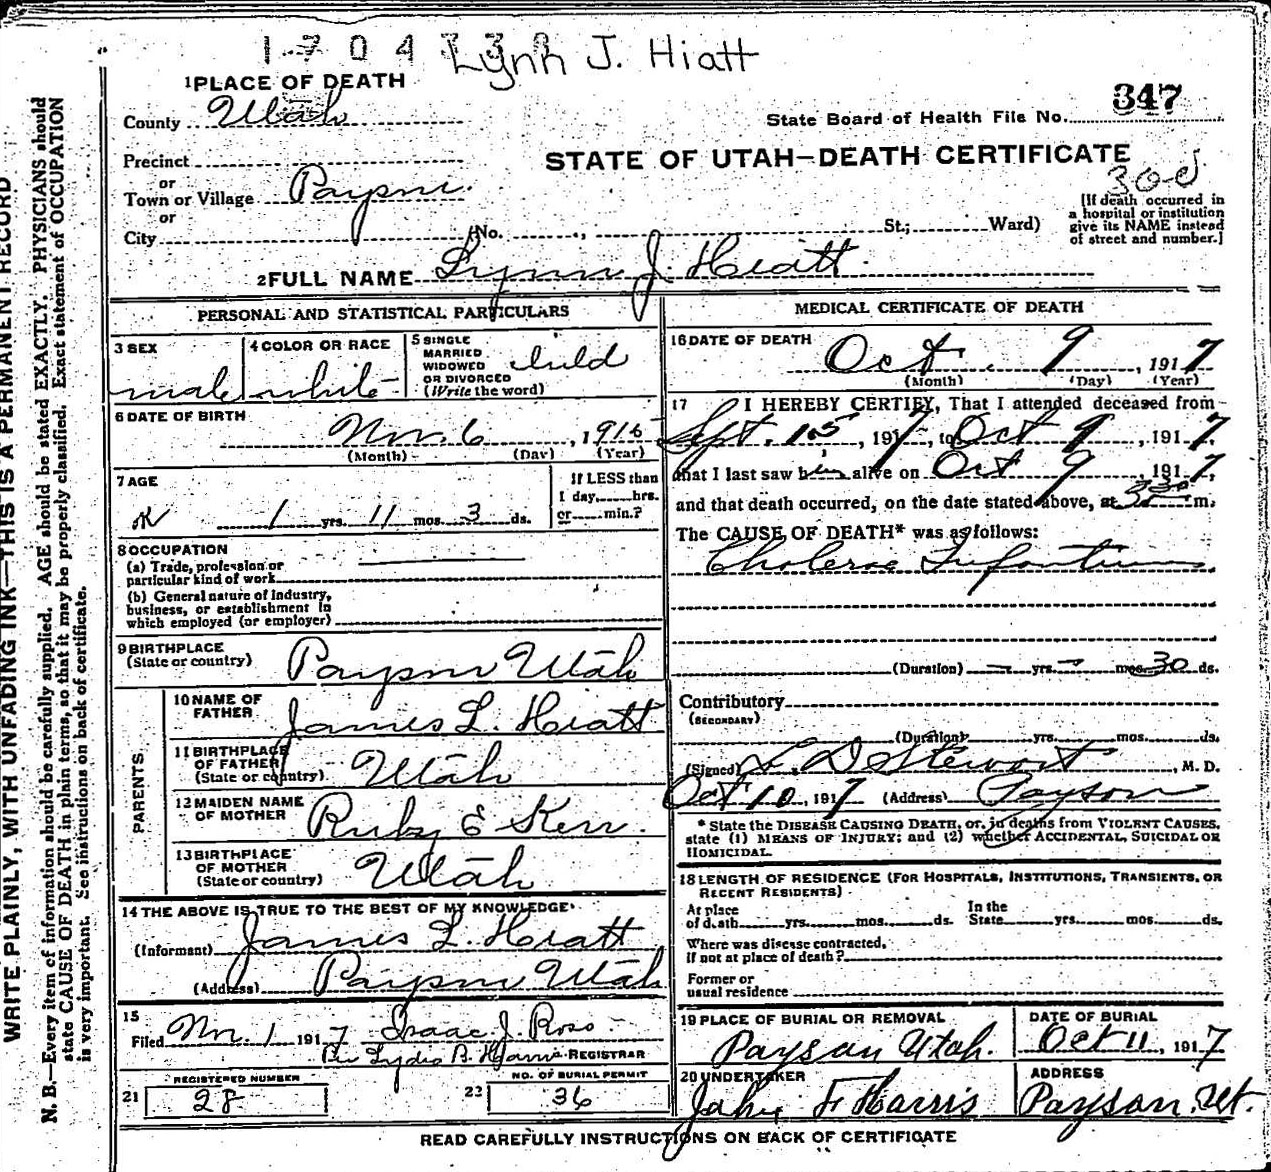 Lynn J. Hiatt
1 PLACE OF DEATH
County Utah
State Board of Health File No. 347
Precinct
STATE OF UTAH—DEATH CERTIFICATE
or
Town or Village Payson.
or
City (No. , St.; Ward)
[If death occurred in
a hospital or institution
give its NAME instead
of street and number.]
2 FULL NAME Lynn J. Hiatt.
PERSONAL AND STATISTICAL PARTICULARS
3 SEX
male
4 COLOR OR RACE
white
5 SINGLE
MARRIED
WIDOWED
OR DIVORCED
(Write the word)
child
6 DATE OF BIRTH
Nov. 6, 1915
(Month) (Day) (Year)
7 AGE
1 yrs. 11 mos. 3 ds.
If LESS than
1 day, hrs.
or min.?
8 OCCUPATION
(a) Trade, profession or
particular kind of work
(b) General nature of industry,
business, or establishment in
which employed (or employer)
9 BIRTHPLACE
(State or country) Payson Utah
PARENTS
10 NAME OF
FATHER James L. Hiatt
11 BIRTHPLACE
OF FATHER
(State or country) Utah
12 MAIDEN NAME
OF MOTHER Ruby E Kerr.
13 BIRTHPLACE
OF MOTHER
(State or country) Utah
14 THE ABOVE IS TRUE TO THE BEST OF MY KNOWLEDGE
(Informant) James L. Hiatt
(Address) Payson Utah
15
Filed Nov. 1 1917 Isaac J. Ross.
Per Lydia B. REGISTRAR
REGISTERED NUMBER
21 28
NO. OF BURIAL PERMIT
22 36
MEDICAL CERTIFICATE OF DEATH
16 DATE OF DEATH
Oct. 9, 1917
(Month) (Day) (Year)
17 I HEREBY CERTIFY, That I attended deceased from
Sept. 15, 1917, to Oct 9, 1917,
that I last saw him alive on Oct 9, 1917,
and that death occurred, on the date stated above, at m.
The CAUSE OF DEATH* was as follows:
Cholera Infantum
(Duration) — yrs. — mos. 30 ds.
Contributory
(SECONDARY)
(Duration) yrs. mos. ds.
(Signed) L. D Stewart, M. D.
Oct 10, 1917 (Address) Payson
* State the DISEASE CAUSING DEATH, or, in deaths from VIOLENT CAUSES,
state (1) MEANS OF INJURY; and (2) whether ACCIDENTAL, SUICIDAL OR
HOMICIDAL.
18 LENGTH OF RESIDENCE (FOR HOSPITALS, INSTITUTIONS, TRANSIENTS, OR
RECENT RESIDENTS)
At place
of death yrs. mos. ds.
In the
State yrs. mos. ds.
Where was disease contracted,
if not at place of death?
Former or
usual residence
19 PLACE OF BURIAL OR REMOVAL
Payson Utah.
DATE OF BURIAL
Oct 11, 1917
20 UNDERTAKER
F Harris
ADDRESS
Payson. Ut.
READ CAREFULLY INSTRUCTIONS ON BACK OF CERTIFICATE
WRITE PLAINLY, WITH UNFADING INK—THIS IS A PERMANENT RECORD
N. B.—Every item of information should be carefully supplied. AGE should be stated EXACTLY. PHYSICIANS should
state CAUSE OF DEATH in plain terms, so that it may be properly classified. Exact statement of OCCUPATION
is very important. See instructions on back of certificate.